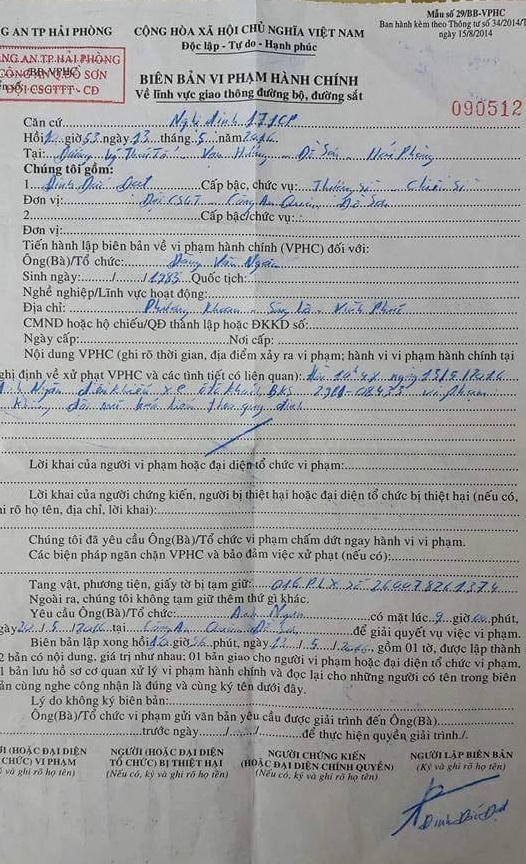 G AN TP HẢI PHÒNG
CỘNG HÒA XÃ HỘI CHỦ NGHĨA VIỆT NAM
Độc lập - Tự do - Hạnh phúc
Mẫu số 29/BB-VPHC
Ban hành kèm theo Thông tư số 34/2014/T
ngày 15/8/2014
NG AN.TP.HẢI PHÒNG
CÔNG AN Q.ĐỒ SƠN
ĐỘI CSGTTT - CĐ
BB-VPHC
BIÊN BẢN VI PHẠM HÀNH CHÍNH
Về lĩnh vực giao thông đường bộ, đường sắt
090512
Căn cứ Nghị định 171CP
Hồi giờ 53 ngày 13 tháng 5 năm 2016
Tại: Đường Lý Thái Tổ Vạn Hương Đồ Sơn Hải Phòng
Chúng tôi gồm:
1. Đinh Đức Đạt Cấp bậc, chức vụ: Thượng sĩ Chiến sĩ
Đơn vị: Đội CSGT Công An Quận Đồ Sơn
2. Cấp bậc/chức vụ:
Đơn vị:
Tiến hành lập biên bản về vi phạm hành chính (VPHC) đối với:
Ông(Bà)/Tổ chức: Đặng Văn Ngân
Sinh ngày: / /1983 Quốc tịch:
Nghề nghiệp/Lĩnh vực hoạt động:
Địa chỉ: Phương Khoan - Sông Lô - Vĩnh Phúc
CMND hoặc hộ chiếu/QĐ thành lập hoặc ĐKKD số:
Ngày cấp: Nơi cấp:
Nội dung VPHC (ghi rõ thời gian, địa điểm xảy ra vi phạm; hành vi vi phạm hành chính tại
ghị định về xử phạt VPHC và các tình tiết có liên quan): ngày 13/5/2016
Anh Ngân điều khiển xe ô tô khách BKS vi phạm:
Không đội mũ bảo hiểm theo quy định
Lời khai của người vi phạm hoặc đại diện tổ chức vi phạm:
Lời khai của người chứng kiến, người bị thiệt hại hoặc đại diện tổ chức bị thiệt hại (nếu có,
i rõ họ tên, địa chỉ, lời khai):
Chúng tôi đã yêu cầu Ông(Bà)/Tổ chức vi phạm chấm dứt ngay hành vi vi phạm.
Các biện pháp ngăn chặn VPHC và bảo đảm việc xử phạt (nếu có):
Tang vật, phương tiện, giấy tờ bị tạm giữ: 01 GPLX số 260078261374
Ngoài ra, chúng tôi không tạm giữ thêm thứ gì khác.
Yêu cầu Ông(Bà)/Tổ chức: Anh Ngân có mặt lúc 9 giờ 00 phút,
gày 20/5/2016 tại Công An Quận Đồ Sơn để giải quyết vụ việc vi phạm.
Biên bản lập xong hồi giờ 56 phút, ngày 13/5/2016, gồm 01 tờ, được lập thành
2 bản có nội dung, giá trị như nhau; 01 bản giao cho người vi phạm hoặc đại diện tổ chức vi phạm,
1 bản lưu hồ sơ cơ quan xử lý vi phạm hành chính và đọc lại cho những người có tên trong biên
ản cùng nghe công nhận là đúng và cùng ký tên dưới đây.
Lý do không ký biên bản:
Ông(Bà)/Tổ chức vi phạm gửi văn bản yêu cầu được giải trình đến Ông(Bà)
trước ngày / / để thực hiện quyền giải trình./.
I (HOẶC ĐẠI DIỆN
CHỨC) VI PHẠM
và ghi rõ họ tên)
NGƯỜI (HOẶC ĐẠI DIỆN
TỔ CHỨC) BỊ THIỆT HẠI
(Nếu có, ký và ghi rõ họ tên)
NGƯỜI CHỨNG KIẾN
(HOẶC ĐẠI DIỆN CHÍNH QUYỀN)
(Nếu có, ký và ghi rõ họ tên)
NGƯỜI LẬP BIÊN BẢN
(Ký và ghi rõ họ tên)
Đinh Đức Đạt